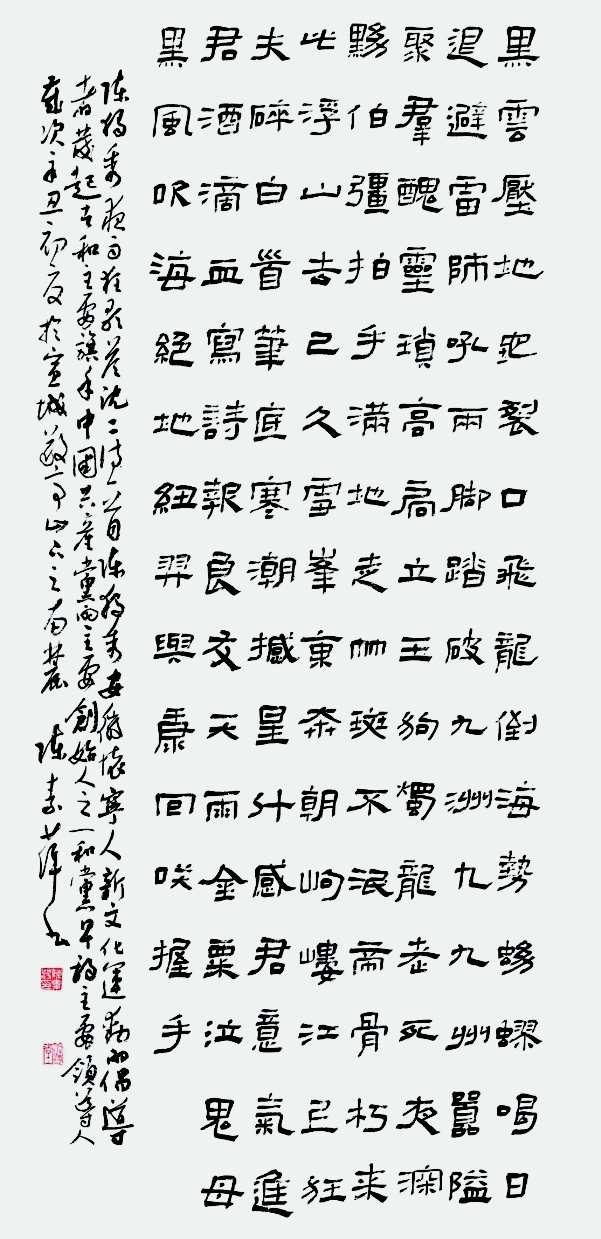 黑雲壓地地裂口飛龍倒海勢蚴蟉喝日
退避雷師吼兩脚踏破九洲九九州囂隘
聚羣醜靈瑣高扃立玉狗燭龍老死夜深
黝伯彊拍手滿地走竹斑不泯帝骨朽来
此浮山去已久雪峯東奔朝峋嶁江上狂
夫碎白首筆底寒潮撼星斗感君意氣進
君酒滴血寫詩報良友天雨金粟泣鬼母
黑風吹海絕地紐羿與康回咲握手
陳獨秀夜雨狂歌答沈二詩一首陳獨秀安徽懷寧人新文化運動的倡導
者發起者和主要旗手中國共產黨的主要創始人之一和黨早期主要領導人
歲次辛丑初夏於宣城敬亭山下之南麓 陳素萍書